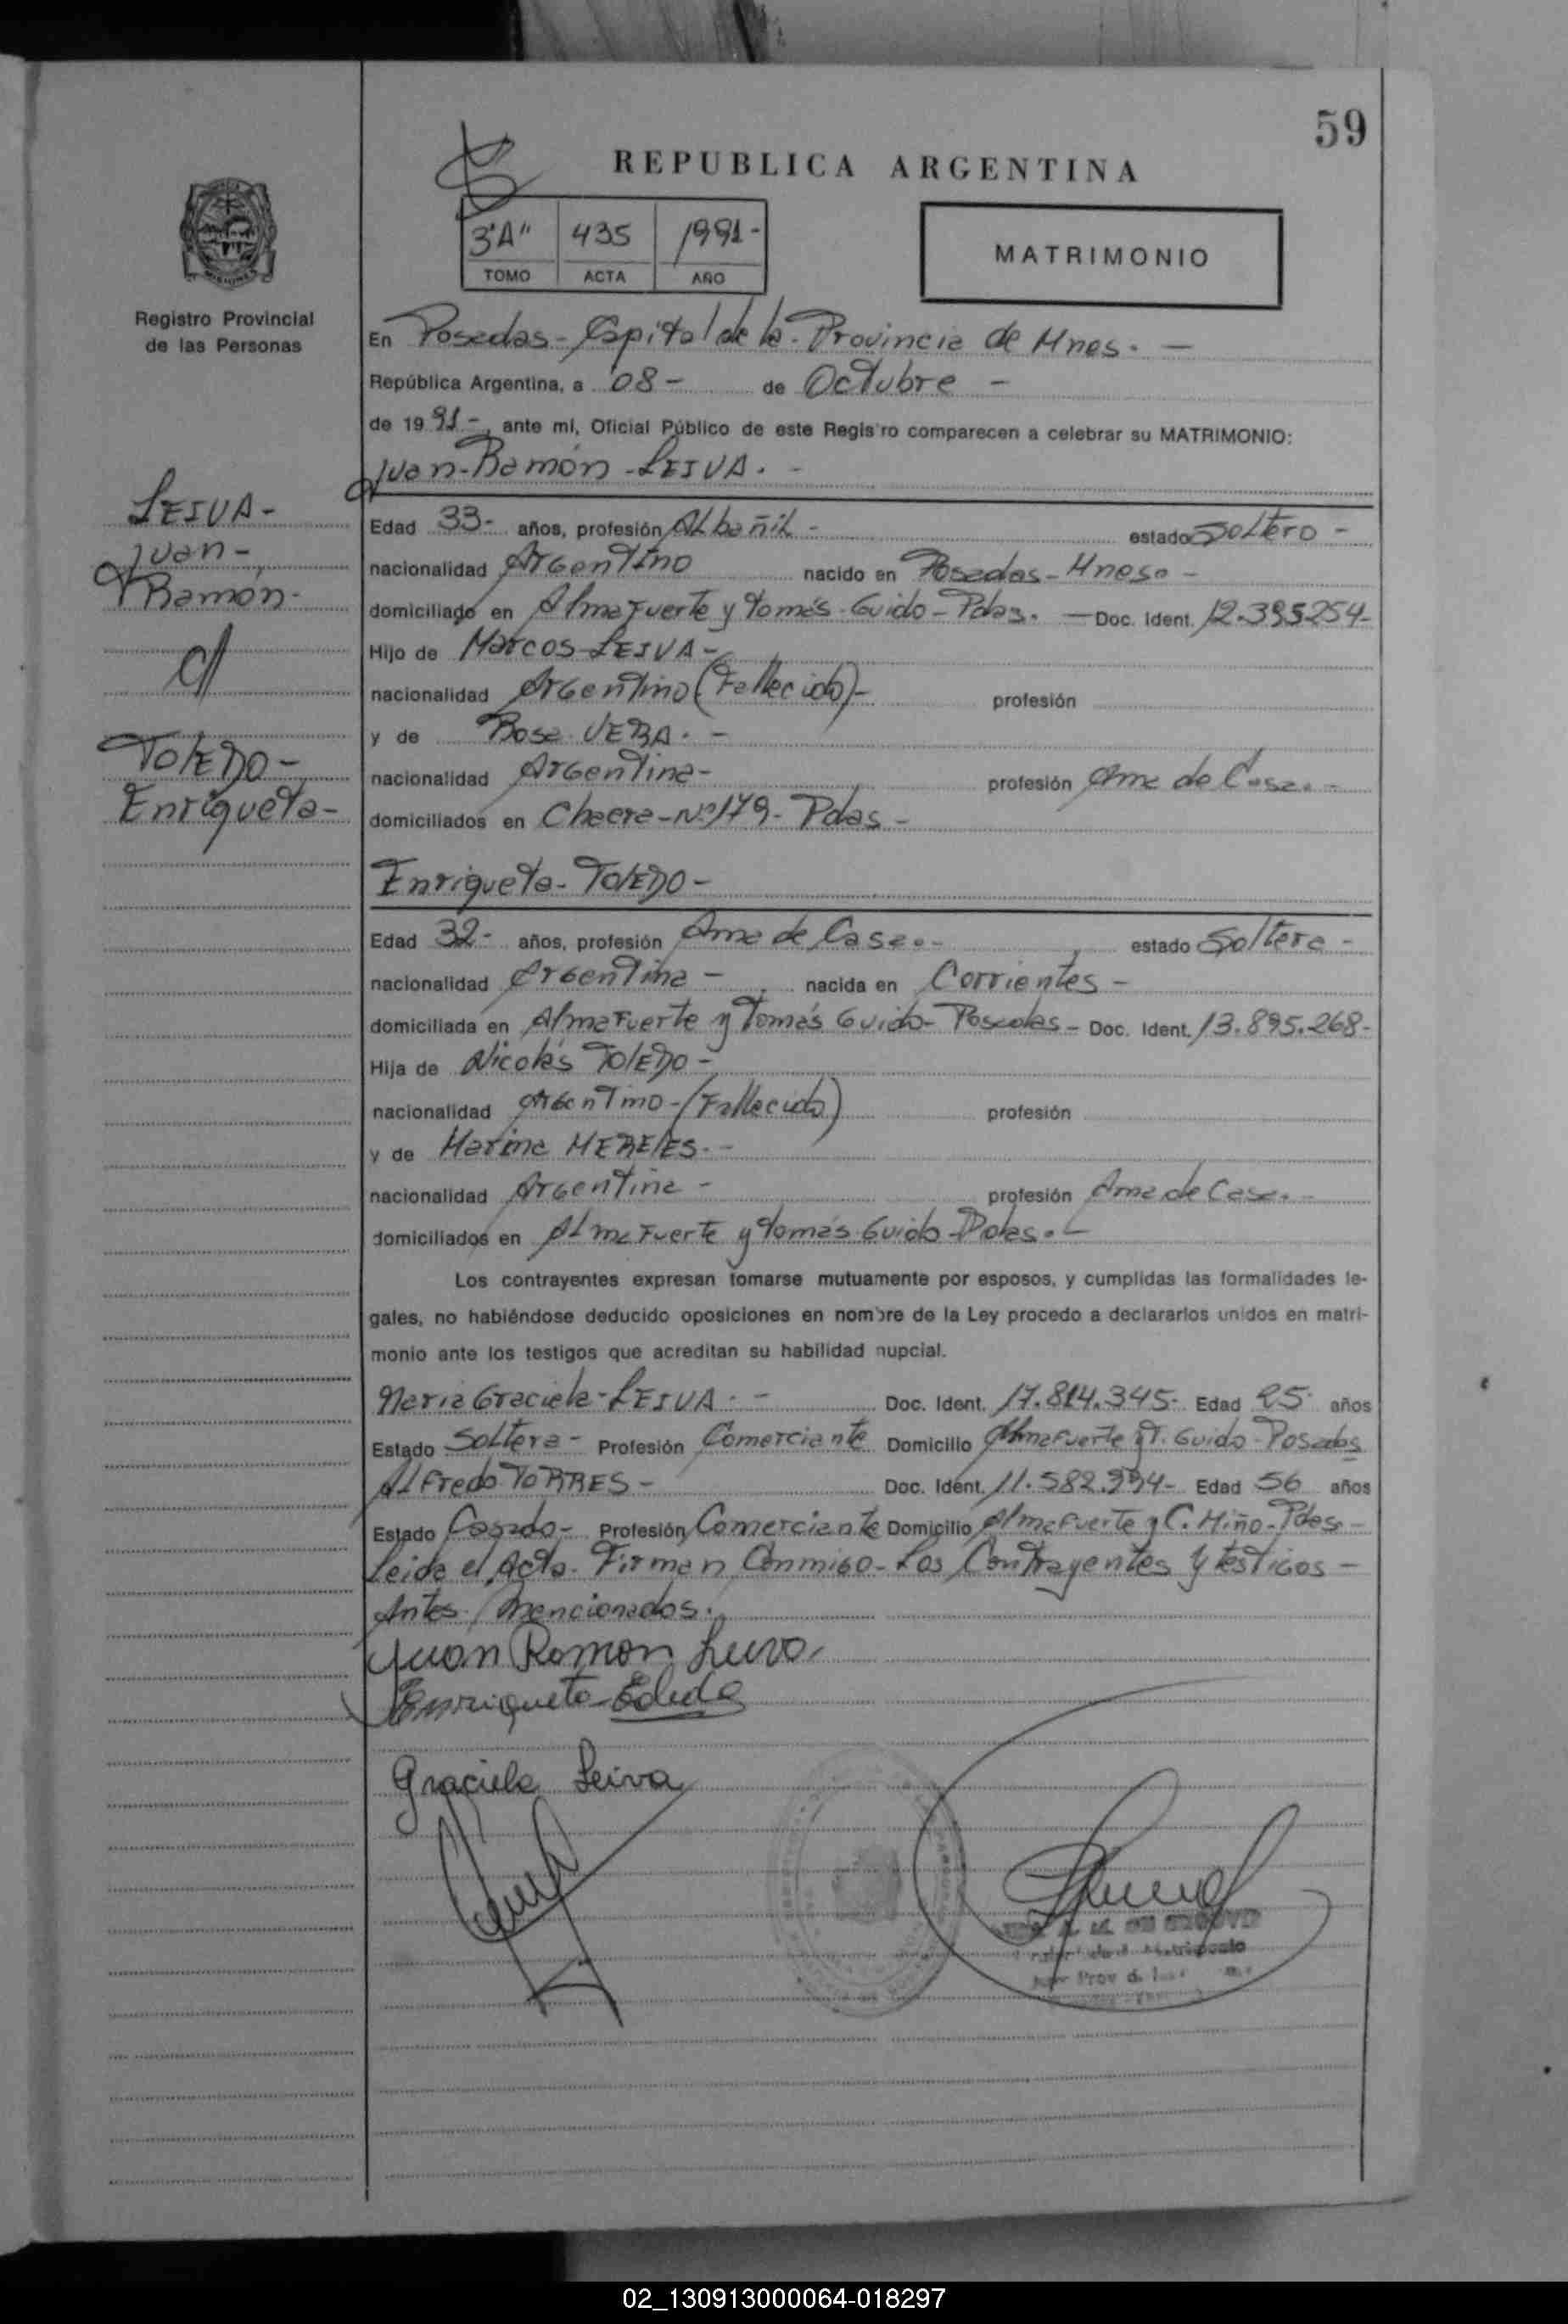 59
REPUBLICA ARGENTINA
3"A" 435 1991-
TOMO ACTA AÑO
MATRIMONIO
Registro Provincial
de las Personas
LEIVA-
Juan-
Ramón-
TOLEDO-
Enriqueta-
En Posadas-Capital de la-Provincia de Mnes. -
República Argentina, a 08- de Octubre -
de 1991-, ante mí, Oficial Público de este Registro comparecen a celebrar su MATRIMONIO:
Juan-Ramón-LEIVA. -
Edad 33- años, profesión Albañil - estado Soltero -
nacionalidad Argentino nacido en Posadas-Mnes. -
domiciliado en Almafuerte y Tomás-Guido-Pdas. - Doc. Ident. 12.395254-
Hijo de Marcos-LEIVA-
nacionalidad Argentino (Fallecido)- profesión
y de Rosa VERA. -
nacionalidad Argentina- profesión Ama de Casa. -
domiciliados en Chacra-Nº179- Pdas-
Enriqueta-TOLEDO-
Edad 32- años, profesión Ama de Casa.- estado Soltera -
nacionalidad Argentina - nacida en Corrientes -
domiciliada en Almafuerte y Tomás Guido-Posadas- Doc. Ident. 13.895.268-
Hija de Nicolás TOLEDO-
nacionalidad Argentino-(Fallecido) profesión
y de Marina MERELES.-
nacionalidad Argentina - profesión Ama de Casa. -
domiciliados en Almafuerte y Tomás-Guido-Pdas.-
Los contrayentes expresan tomarse mutuamente por esposos, y cumplidas las formalidades le-
gales, no habiéndose deducido oposiciones en nombre de la Ley procedo a declararlos unidos en matri-
monio ante los testigos que acreditan su habilidad nupcial.
María Graciela-LEIVA. - Doc. Ident. 17.814.345- Edad 25 años
Estado Soltera- Profesión Comerciante Domicilio Almafuerte y T. Guido-Posadas
Alfredo TORRES- Doc. Ident. 11.582.994- Edad 56 años
Estado Casado- Profesión Comerciante Domicilio Almafuerte y C. Miño-Pdas-
Leida el Acta. Firman Conmigo-Los Contrayentes y testigos -
Antes Mencionados.
Juan Ramon Leiva
Enriqueta Toledo
Graciela Leiva
02_130913000064-018297